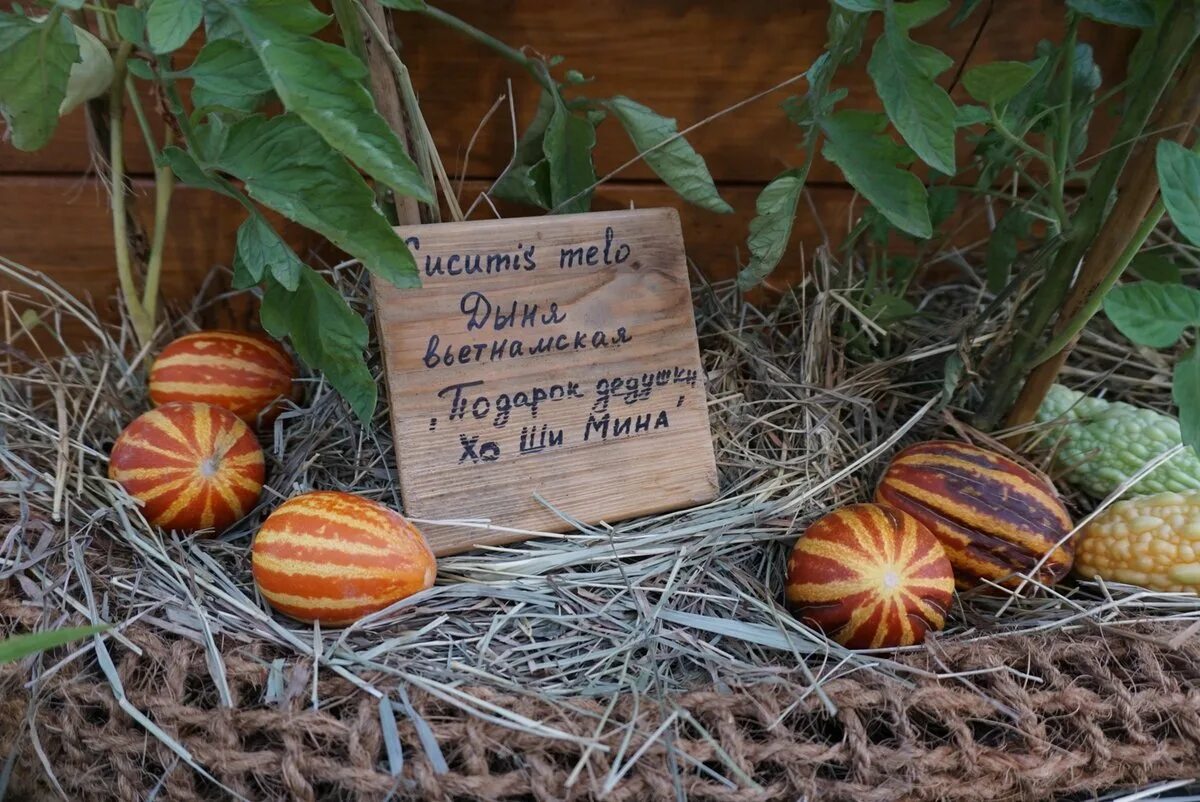 Cucumis melo
Дыня
вьетнамская
„Подарок дедушки
Хо Ши Мина"